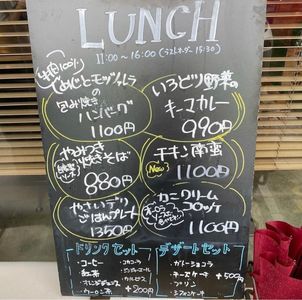 LUNCH
11:00 〜 16:00 (ラストオーダー 15:30)
牛肉100%
とモッツァレラ
の
包み焼き
ハンバーグ
1100円
いろどり野菜の
キーマカレー
990円
やみつき
焼きそば
880円
チキン南蛮
New!
1100円
やさいデリ
ごはんプレート
1350円
カニクリーム
コロッケ
1100円
ドリンクセット
コーヒー
紅茶
オレンジジュース
ウーロン茶
コカコーラ
ジンジャーエール
カルピス
+200円
デザートセット
ガトーショコラ
チーズケーキ
プリン
シフォンケーキ
+500円